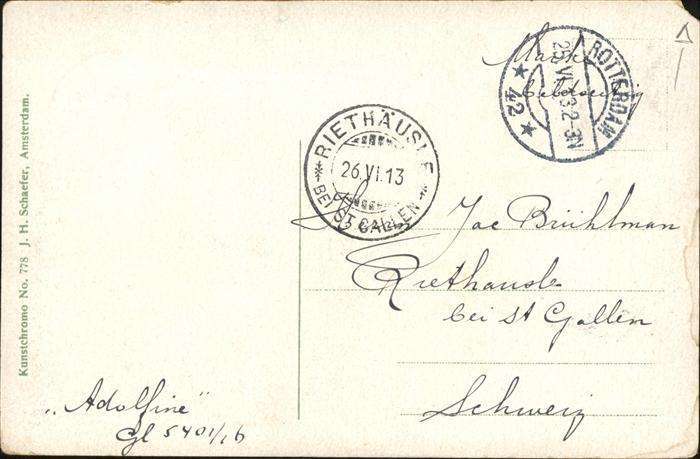 Marke
bildseitig
ROTTERDAM
25.VI.13.2-3N
* 42 *
RIETHÄUSLE
26.VI.13
BEI ST. GALLEN
Joe Brühlman
Riethausle
bei St Gallen
Schweiz
"Adolfine"
Gl 5401/16
Kunstchromo No. 778 J. H. Schaefer, Amsterdam.